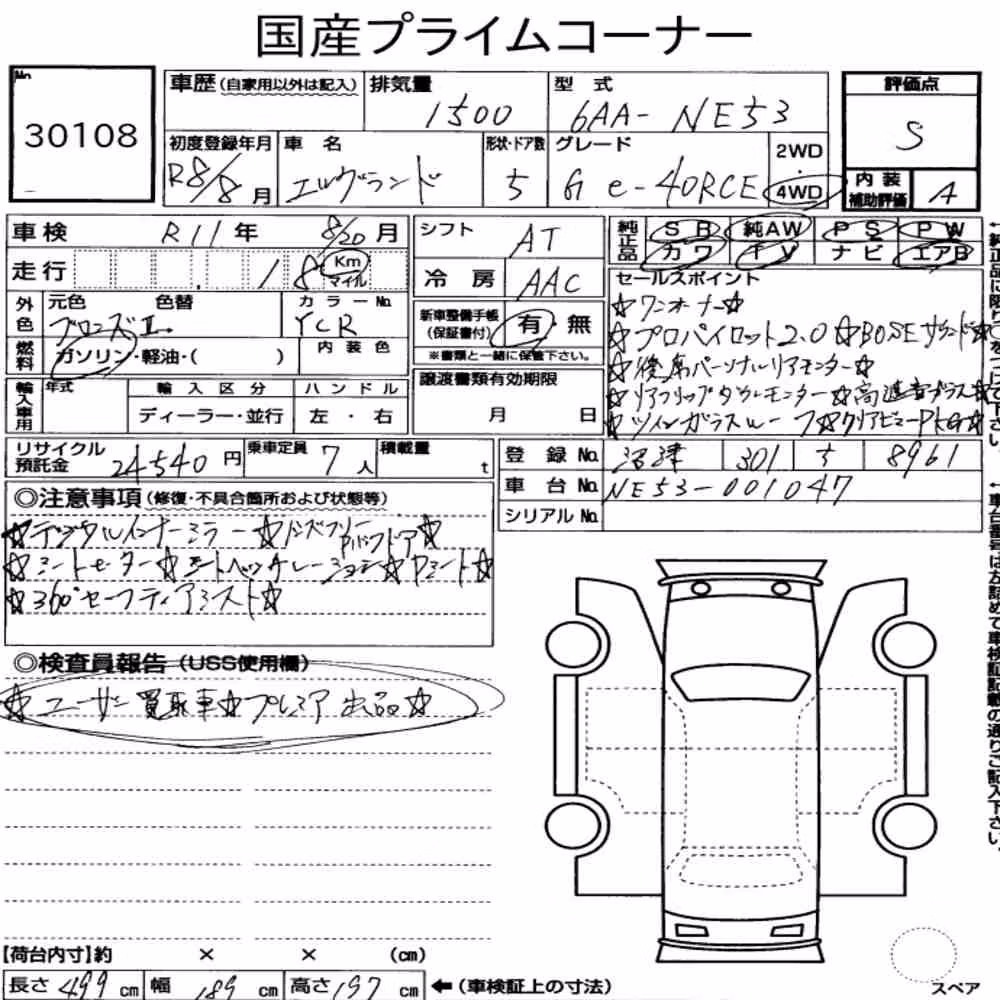 国産プライムコーナー
No.
30108
車歴(自家用以外は記入)
排気量
1500
型式
6AA-NE53
評価点
S
初度登録年月
R8/8月
車名
エルグランド
形状・ドア数
5
グレード
G e-4ORCE
2WD
4WD
内装補助評価
A
車検
R11年 8/20月
走行
18
Km
マイル
シフト
AT
冷房
AAC
純正品
SR
純AW
PS
PW
カワ
TV
ナビ
エアB
外色
元色
色替
ブロンズII
カラーNo.
YCR
燃料
ガソリン・軽油・( )
内装色
新車整備手帳(保証書付)
有・無
※書類と一緒に保管下さい。
セールスポイント
☆ワンオーナー☆
☆プロパイロット2.0☆BOSEサウンド☆
☆後席パーソナルリアモニター☆
輸入車用
年式
輸入区分
ディーラー・並行
ハンドル
左・右
譲渡書類有効期限
月 日
リサイクル預託金
24540円
乗車定員
7人
積載量
t
登録No.
沼津 301 す 8961
車台No.
NE53-001047
シリアルNo.
◎注意事項(修復・不具合箇所および状態等)
☆デジタルインナーミラー☆ハンズフリー
☆シートヒーター☆シートベンチレーション☆
☆360°セーフティアシスト☆
◎検査員報告(USS使用欄)
☆ユーザー買取車☆プレミア出品☆
【荷台内寸】約 × × (cm)
長さ 499 cm
幅 189 cm
高さ 197 cm
←(車検証上の寸法)
スペア
←車台番号は左詰めで車検証記載の通りご記入下さい。